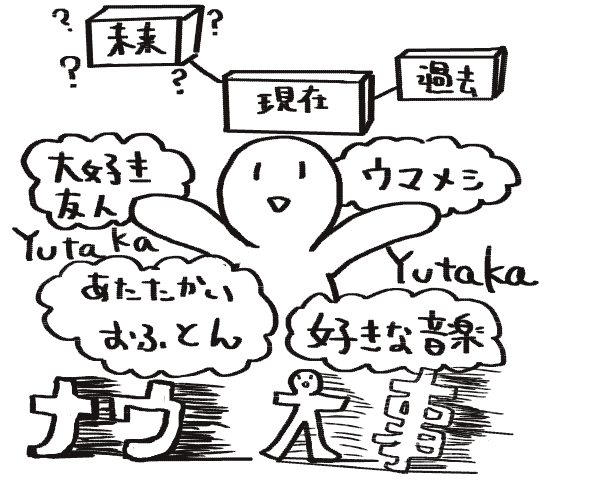 ? 未来 ?
? ?
現在
過去
大好き
友人
ウマメシ
Yutaka
Yutaka
あたたかい
おふとん
好きな音楽
ナウ大事